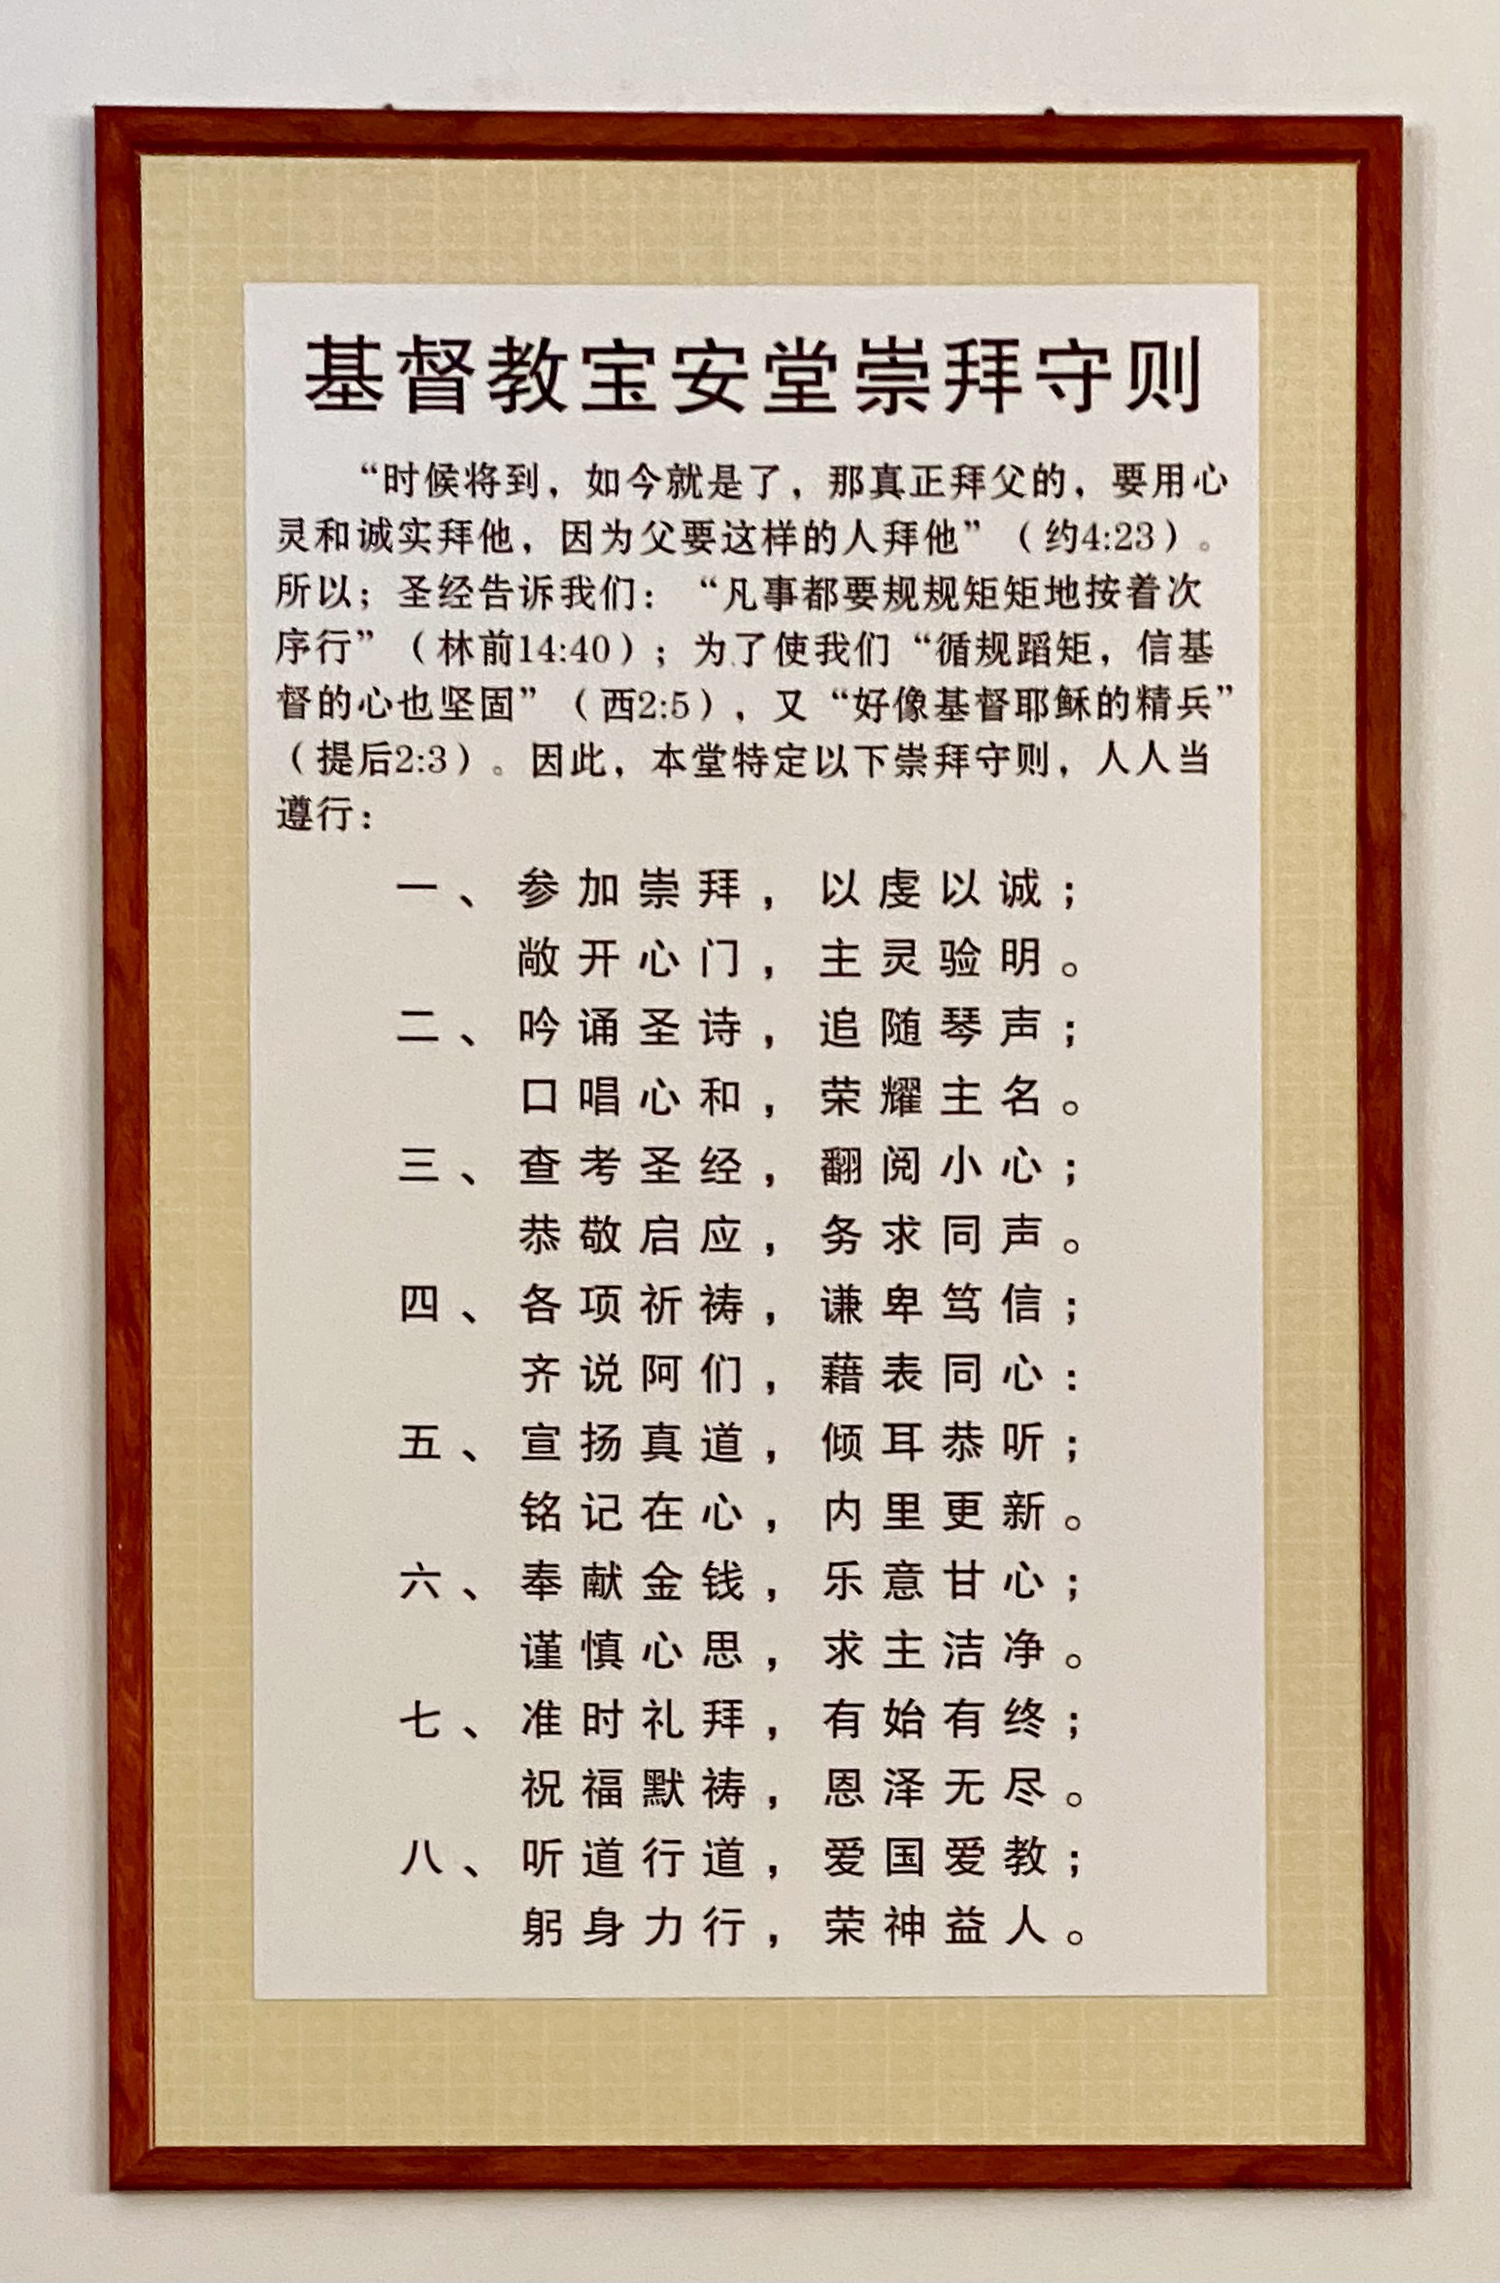 基督教宝安堂崇拜守则
“时候将到，如今就是了，那真正拜父的，要用心
灵和诚实拜他，因为父要这样的人拜他”（约4:23）。
所以；圣经告诉我们：“凡事都要规规矩矩地按着次
序行”（林前14:40）；为了使我们“循规蹈矩，信基
督的心也坚固”（西2:5），又“好像基督耶稣的精兵”
（提后2:3）。因此，本堂特定以下崇拜守则，人人当
遵行：
一、参加崇拜，以虔以诚；
敞开心门，主灵验明。
二、吟诵圣诗，追随琴声；
口唱心和，荣耀主名。
三、查考圣经，翻阅小心；
恭敬启应，务求同声。
四、各项祈祷，谦卑笃信；
齐说阿们，藉表同心：
五、宣扬真道，倾耳恭听；
铭记在心，内里更新。
六、奉献金钱，乐意甘心；
谨慎心思，求主洁净。
七、准时礼拜，有始有终；
祝福默祷，恩泽无尽。
八、听道行道，爱国爱教；
躬身力行，荣神益人。